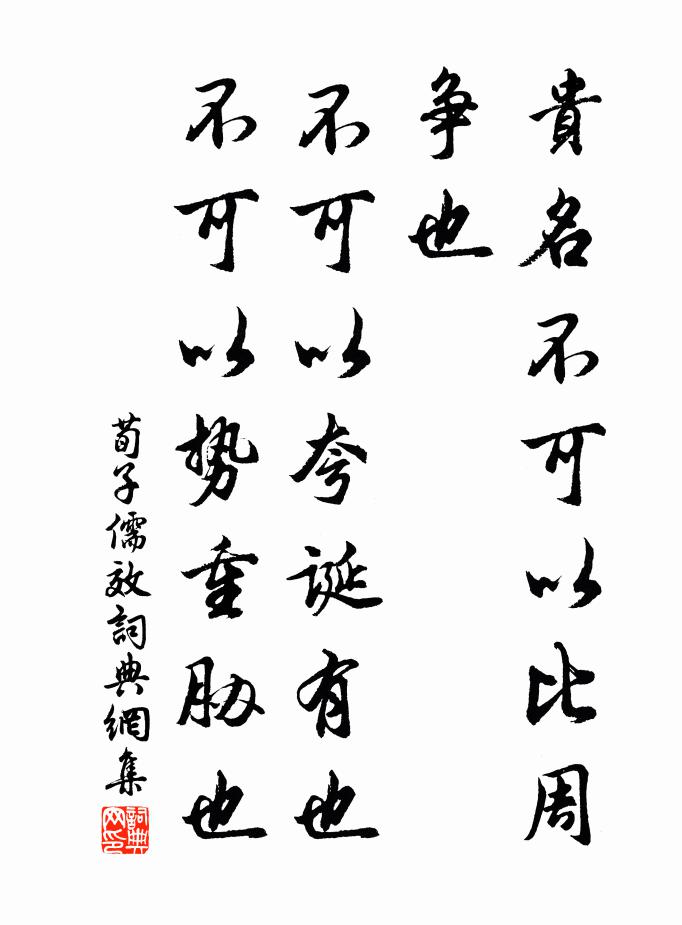 貴名不可以比周
争也
不可以夸誕有也
不可以势重胁也
荀子儒效詞典網集
詞典网印